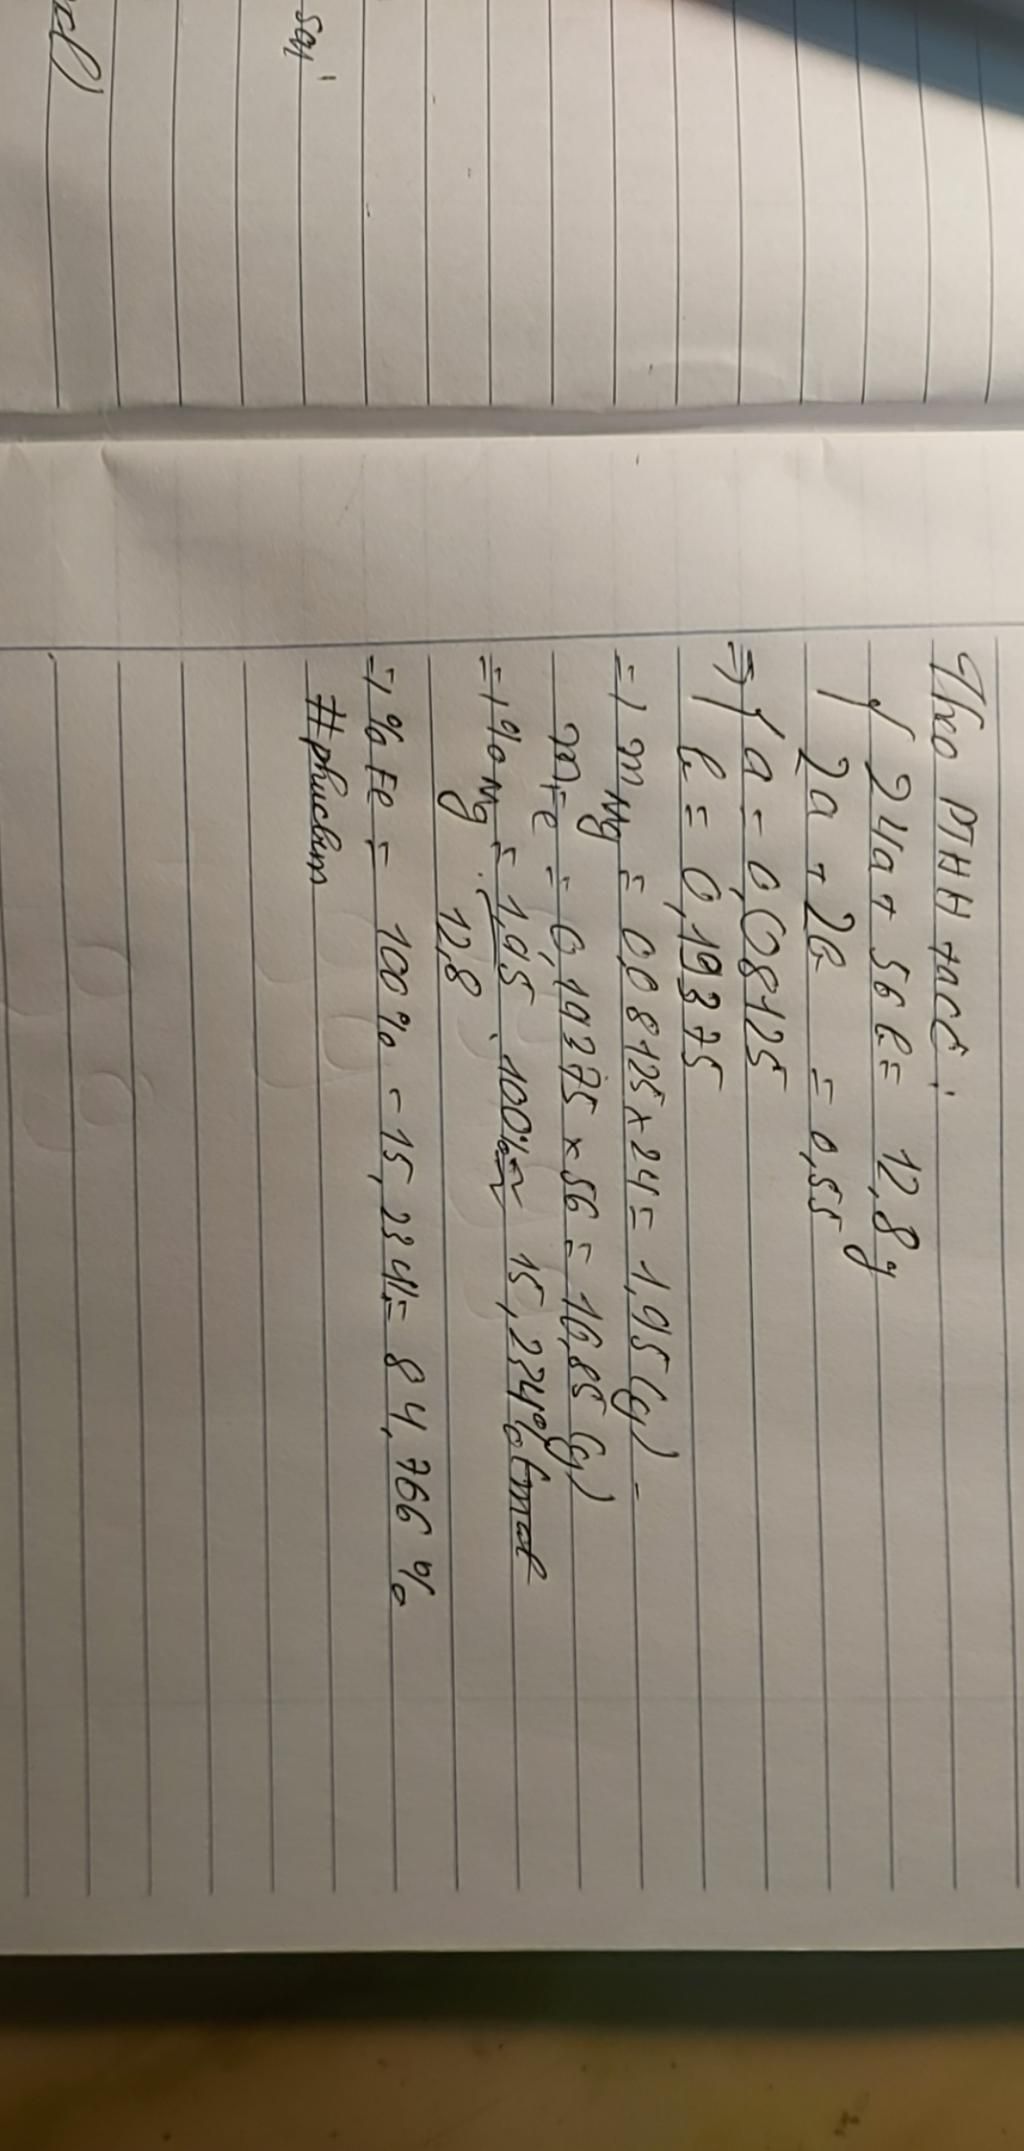 Theo PTHH ta có:
{ 24a + 56b = 12,8g
2a + 2b = 0,55
=> { a = 0,08125
b = 0,19375
=> mMg = 0,08125 x 24 = 1,95 (g)
mFe = 0,19375 x 56 = 10,85 (g)
=> % Mg = 1,95 . 100% ≈ 15,234%
12,8
=> % Fe = 100% - 15,234 = 84,766 %
say